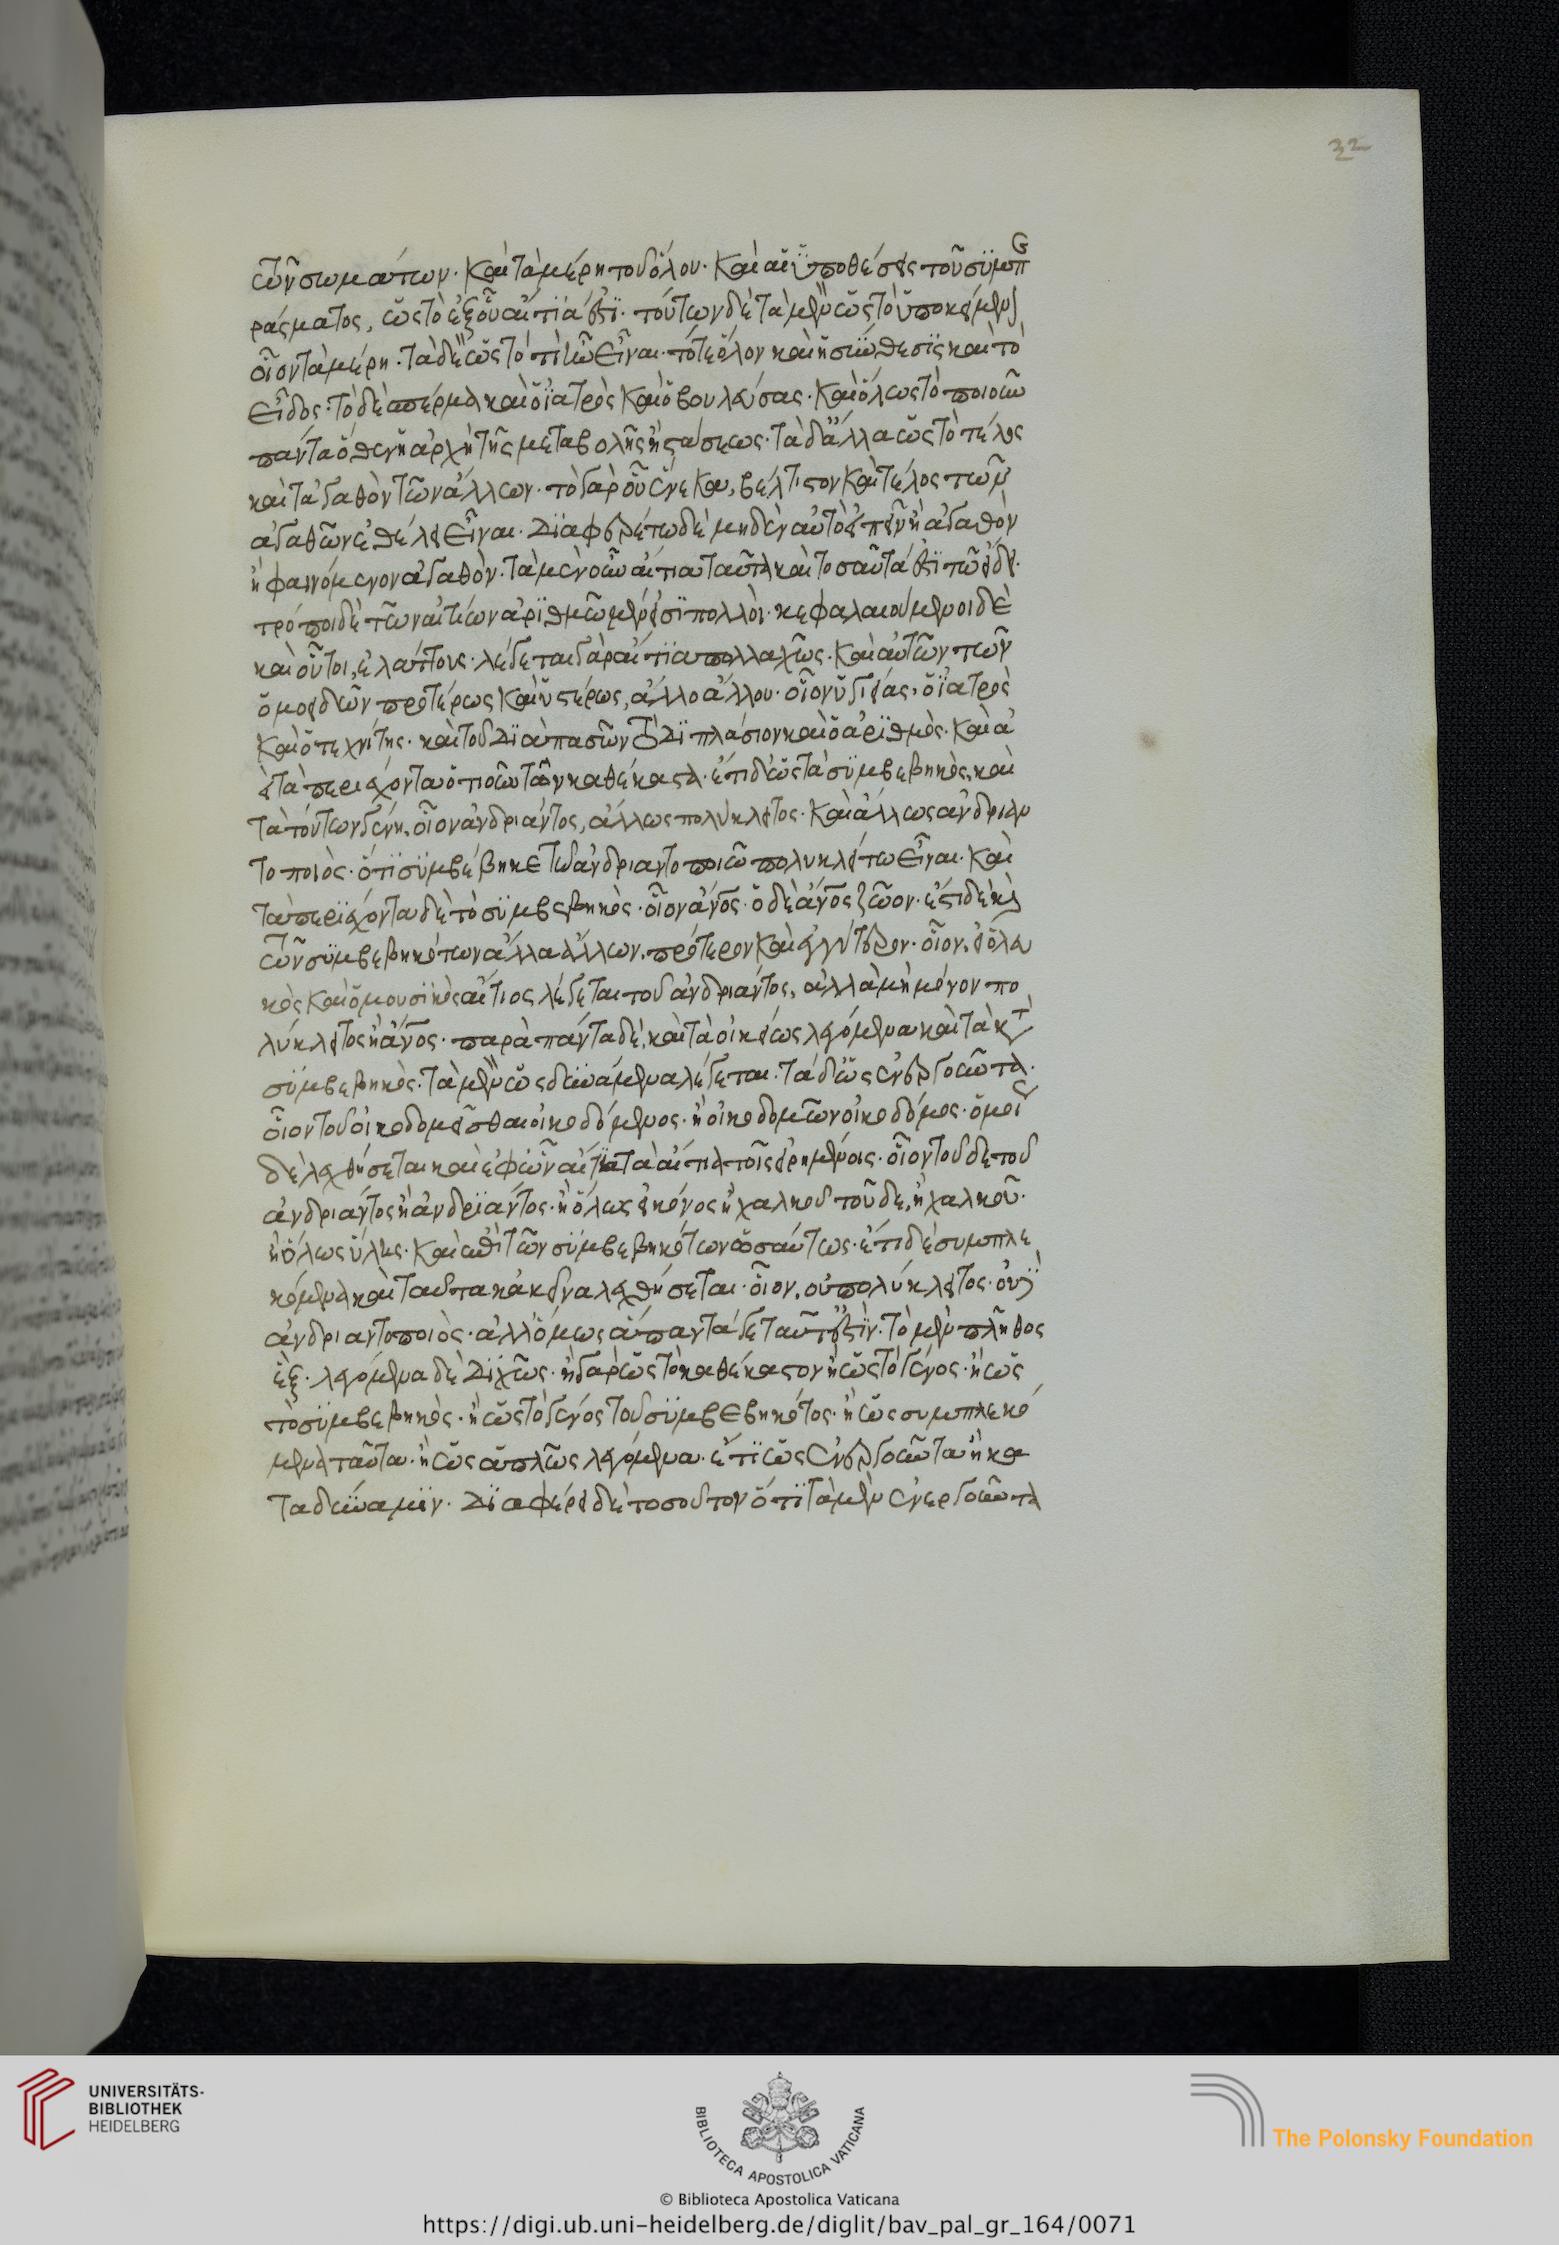 32
τῶν σωμάτων· καὶ τὰ μέρη τοῦ ὅλου· καὶ αἱ ὑποθέσεις τοῦ συμπε
ράσματος, ὡς τὸ ἐξ οὗ αἴτιά ἐστι· τούτων δὲ τὰ μὲν ὡς τὸ ὑποκείμενον
οἷον τὰ μέρη· τὰ δὲ ὡς τὸ τὶ ἦν εἶναι· τό τε ὅλον καὶ ἡ σύνθεσις καὶ τὸ
εἶδος· τὸ δὲ σπέρμα καὶ ὁ ἰατρὸς καὶ ὁ βουλεύσας· καὶ ὅλως τὸ ποιοῦν
πάντα ὅθεν ἡ ἀρχὴ τῆς μεταβολῆς ἢ στάσεως· τὰ δ' ἄλλα ὡς τὸ τέλος
καὶ τἀγαθὸν τῶν ἄλλων· τὸ γὰρ οὗ ἕνεκα, βέλτιστον καὶ τέλος τῶν
ἀγαθῶν ἐθέλει εἶναι· διαφερέτω δὲ μηδὲν αὐτὸ εἰπεῖν ἢ ἀγαθὸν
ἢ φαινόμενον ἀγαθὸν· τὰ μὲν οὖν αἴτια ταῦτα καὶ τοσαῦτά ἐστι τῷ εἴδει·
τρόποι δὲ τῶν αἰτίων ἀριθμῶ μέν εἰσι πολλοὶ· κεφαλαιούμενοι δὲ
καὶ οὗτοι, ἐλάττους· λέγεται γὰρ αἴτια πολλαχῶς· καὶ αὐτῶν τῶν
ὁμοειδῶν προτέρως καὶ ὑστέρως, ἄλλο ἄλλου· οἷον ὑγιείας, ὁ ἰατρὸς
καὶ ὁ τεχνίτης· καὶ τοῦ διαπασῶν τὸ διπλάσιον καὶ ὁ ἀριθμὸς· καὶ ἀ
εὶ τὰ περιέχοντα ὁτιοῦν τῶν καθέκαστα· ἔτι δ' ὡς τὸ συμβεβηκὸς, καὶ
τὰ τούτων γένη, οἷον ἀνδριάντος, ἄλλως πολύκλειτος· καὶ ἄλλως ἀνδριαν
τοποιὸς· ὅτι συμβέβηκε τῶ ἀνδριαντοποιῶ πολυκλείτω εἶναι· καὶ
τὰ περιέχοντα δὲ τὸ συμβεβηκὸς· οἷον ἄνος· ὁ δὲ ἄνος ζῶον· ἔτι δὲ καὶ
τῶν συμβεβηκότων ἄλλα ἄλλων, πρότερον καὶ ἐγγύτερον· οἷον, εἰ ὁ λευ
κὸς καὶ ὁ μουσικὸς αἴτιος λέγεται τοῦ ἀνδριάντος, ἀλλὰ μὴ μόνον πο
λύκλειτος ἢ ἄνος· παρὰ πάντα δὲ, καὶ τὰ οἰκείως λεγόμενα καὶ τὰ κατὰ
συμβεβηκὸς· τὰ μὲν ὡς δυνάμενα λέγεται· τὰ δ' ὡς ἐνεργοῦντα·
οἷον τοῦ οἰκοδομεῖσθαι οἰκοδόμενος· ἢ οἰκοδομῶν οἰκοδόμος· ὁμοίως
δὲ λεχθήσεται καὶ ἐφ' ὧν αἴτια τὰ αἴτια τοῖς εἰρημένοις· οἷον τοῦδε τοῦ
ἀνδριάντος ἢ ἀνδριάντος· ἢ ὅλως εἰκόνος ἢ χαλκοῦ τοῦδε, ἢ χαλκοῦ·
ἢ ὅλως ὕλης· καὶ ἐπὶ τῶν συμβεβηκότων ὡσαύτως· ἔτι δὲ συμπλε
κόμενα καὶ ταῦτα κἀκεῖνα λεχθήσεται· οἷον, οὐ πολύκλειτος· οὐδὲ
ἀνδριαντοποιὸς· ἀλλ' ὅμως ἅπαντά γε ταῦτ' ἐστὶν· τὸ μὲν πλῆθος
ἓξ· λεγόμενα δὲ διχῶς· ἢ γὰρ ὡς τὸ καθέκαστον ἢ ὡς τὸ γένος· ἢ ὡς
τὸ συμβεβηκὸς· ἢ ὡς τὸ γένος τοῦ συμβεβηκότος· ἢ ὡς συμπλεκό
μενα ταῦτα· ἢ ὡς ἁπλῶς λεγόμενα· ἔτι ὡς ἐνεργοῦντα ἢ κα
τὰ δύναμιν· διαφέρει δὲ τοσοῦτον ὅτι τὰ μὲν ἐνεργοῦντα
UNIVERSITÄTS-
BIBLIOTHEK
HEIDELBERG
BIBLIOTECA APOSTOLICA VATICANA
The Polonsky Foundation
© Biblioteca Apostolica Vaticana
https://digi.ub.uni-heidelberg.de/diglit/bav_pal_gr_164/0071